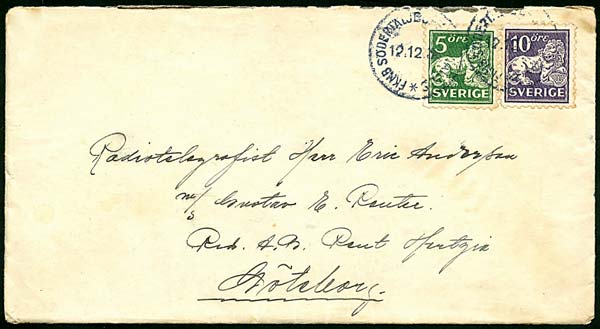 FKNB SÖDERTÄLJE
12.12.
5 ÖRE
SVERIGE
10 ÖRE
SVERIGE
Radiotelegrafist Herr Eric Andersson
m/s Gustaf E. Reuter.
Red. A.B.
Göteborg.